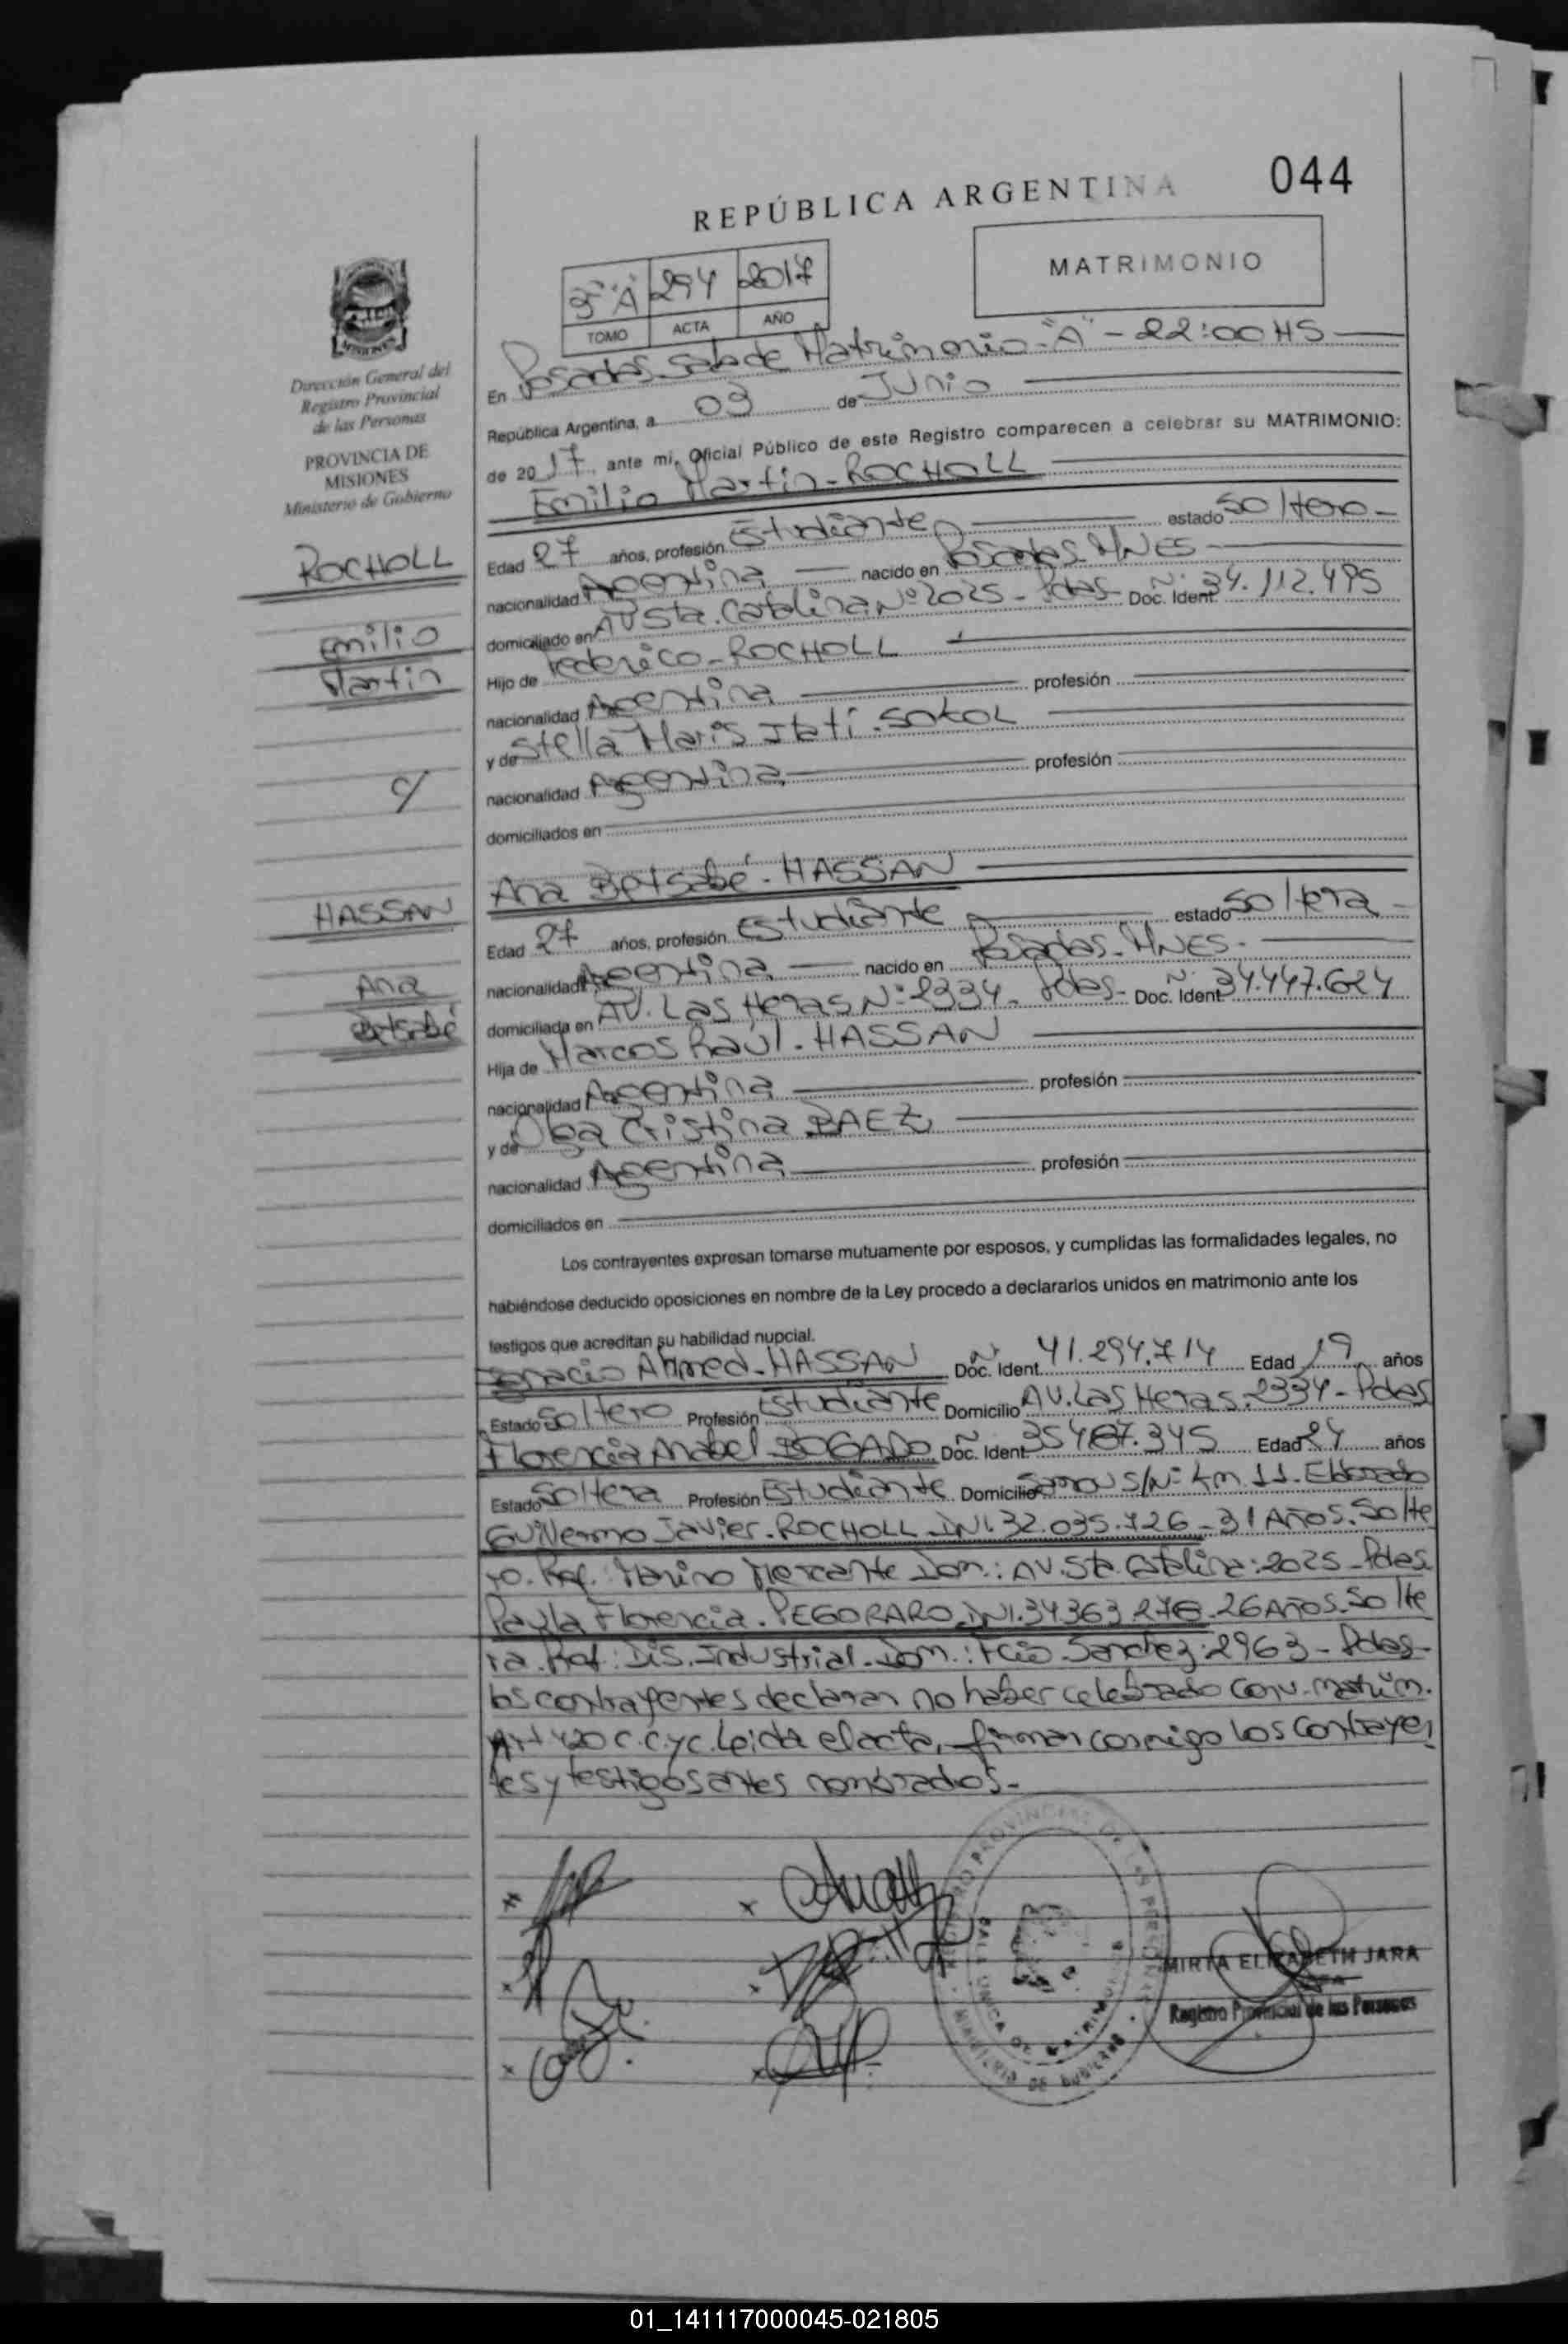 044
REPÚBLICA ARGENTINA
3º "A" 294 2017
TOMO ACTA AÑO
MATRIMONIO
Dirección General del
Registro Provincial
de las Personas
PROVINCIA DE
MISIONES
Ministerio de Gobierno
En Posadas. Sala de Matrimonio-"A"- 22:00 HS
República Argentina, a 09 de Junio
de 2017 ante mi, Oficial Público de este Registro comparecen a celebrar su MATRIMONIO:
Emilio Martin-ROCHOLL
ROCHOLL
Emilio
Martin
c/
HASSAN
Ana
Betsabé
Edad 27 años, profesión Estudiante estado Soltero-
nacionalidad Argentina nacido en Posadas. MNES-
domiciliado en AV Sta. Catalina Nº 2025- Pdas- Doc. Ident. Nº 34.112.495
Hijo de Federico-ROCHOLL
nacionalidad Argentina profesión
y de Stella Maris Itatí. SOKOL
nacionalidad Argentina profesión
domiciliados en
Ana Betsabé-HASSAN
Edad 27 años, profesión Estudiante estado Soltera-
nacionalidad Argentina nacido en Posadas-MNES-
domiciliada en AV. Las Heras Nº 2334- Pdas- Doc. Ident. Nº 34.447.624
Hija de Marcos Raúl-HASSAN
nacionalidad Argentina profesión
y de Olga Cristina BAEZ
nacionalidad Argentina profesión
domiciliados en
Los contrayentes expresan tomarse mutuamente por esposos, y cumplidas las formalidades legales, no
habiéndose deducido oposiciones en nombre de la Ley procedo a declararlos unidos en matrimonio ante los
testigos que acreditan su habilidad nupcial.
Ignacio Ahmed-HASSAN Doc. Ident. Nº 41.294.714 Edad 19 años
Estado Soltero Profesión Estudiante Domicilio AV. Las Heras. 2334- Pdas
Florencia Anabel BOGADO Doc. Ident. Nº Edad 24 años
Estado Soltera Profesión Estudiante Domicilio S/Nº Km 11. Eldorado
Guillermo Javier-ROCHOLL-DNI. 32.035.726-31 Años. Solte
ro. Prof. Marino Mercante Dom.: AV. Sta. Catalina: 2025-Pdas
Paula Florencia. PEGORARO. DNI. 34.363.276-26 Años. Solte
ra. Prof: Dis. Industrial-Dom.: Fcio. Sanchez: 2963- Pdas-
los contrayentes declaran no haber celebrado conv. matrim.
Art 420 C. C y C. Leida el acta, firman conmigo los contrayen
tes y testigos antes nombrados-
REGISTRO PROVINCIAL DE LAS PERSONAS
SALA UNICA DE MATRIMONIOS
MINISTERIO DE GOBIERNO
MIRTA ELIZABETH JARA
Registro Provincial de las Personas
01_141117000045-021805